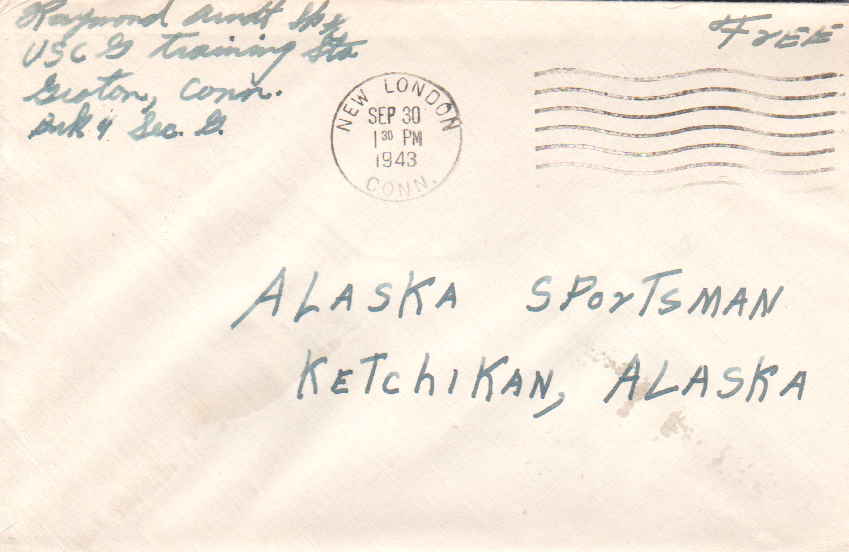 Raymond Arndt
USCG Training Sta
Groton, Conn.
Sec. G.
FrEE
NEW LONDON
SEP 30
1 30 PM
1943
CONN.
ALASKA SPorTSMAN
KETchIKAN, ALASKA